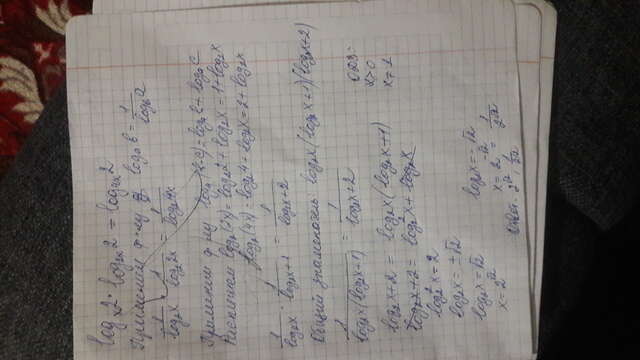 logₓ2 · log₂ₓ2 = log₄ₓ2
Применим ф-лу logₐb = 1/log_b a
1/log₂x · 1/log₂2x = 1/log₂4x
Применим ф-лу logₐ(b·c) = logₐb + logₐc
Распишем log₂(2x) = log₂2 + log₂x = 1 + log₂x
log₂(4x) = log₂4 + log₂x = 2 + log₂x
1/log₂x · 1/log₂x+1 = 1/log₂x+2
Общий знаменатель: log₂x(log₂x+1)(log₂x+2)
1/log₂x(log₂x+1) = 1/log₂x+2
ОДЗ:
x>0
x≠1
log₂x+2 = log₂x(log₂x+1)
log₂x+2 = log₂²x + log₂x
log₂²x = 2
log₂x = ±√2
log₂x = √2
x = 2^√2
log₂x = -√2
x = 2^-√2 = 1/2^√2
Ответ: 2^√2; 1/2^√2